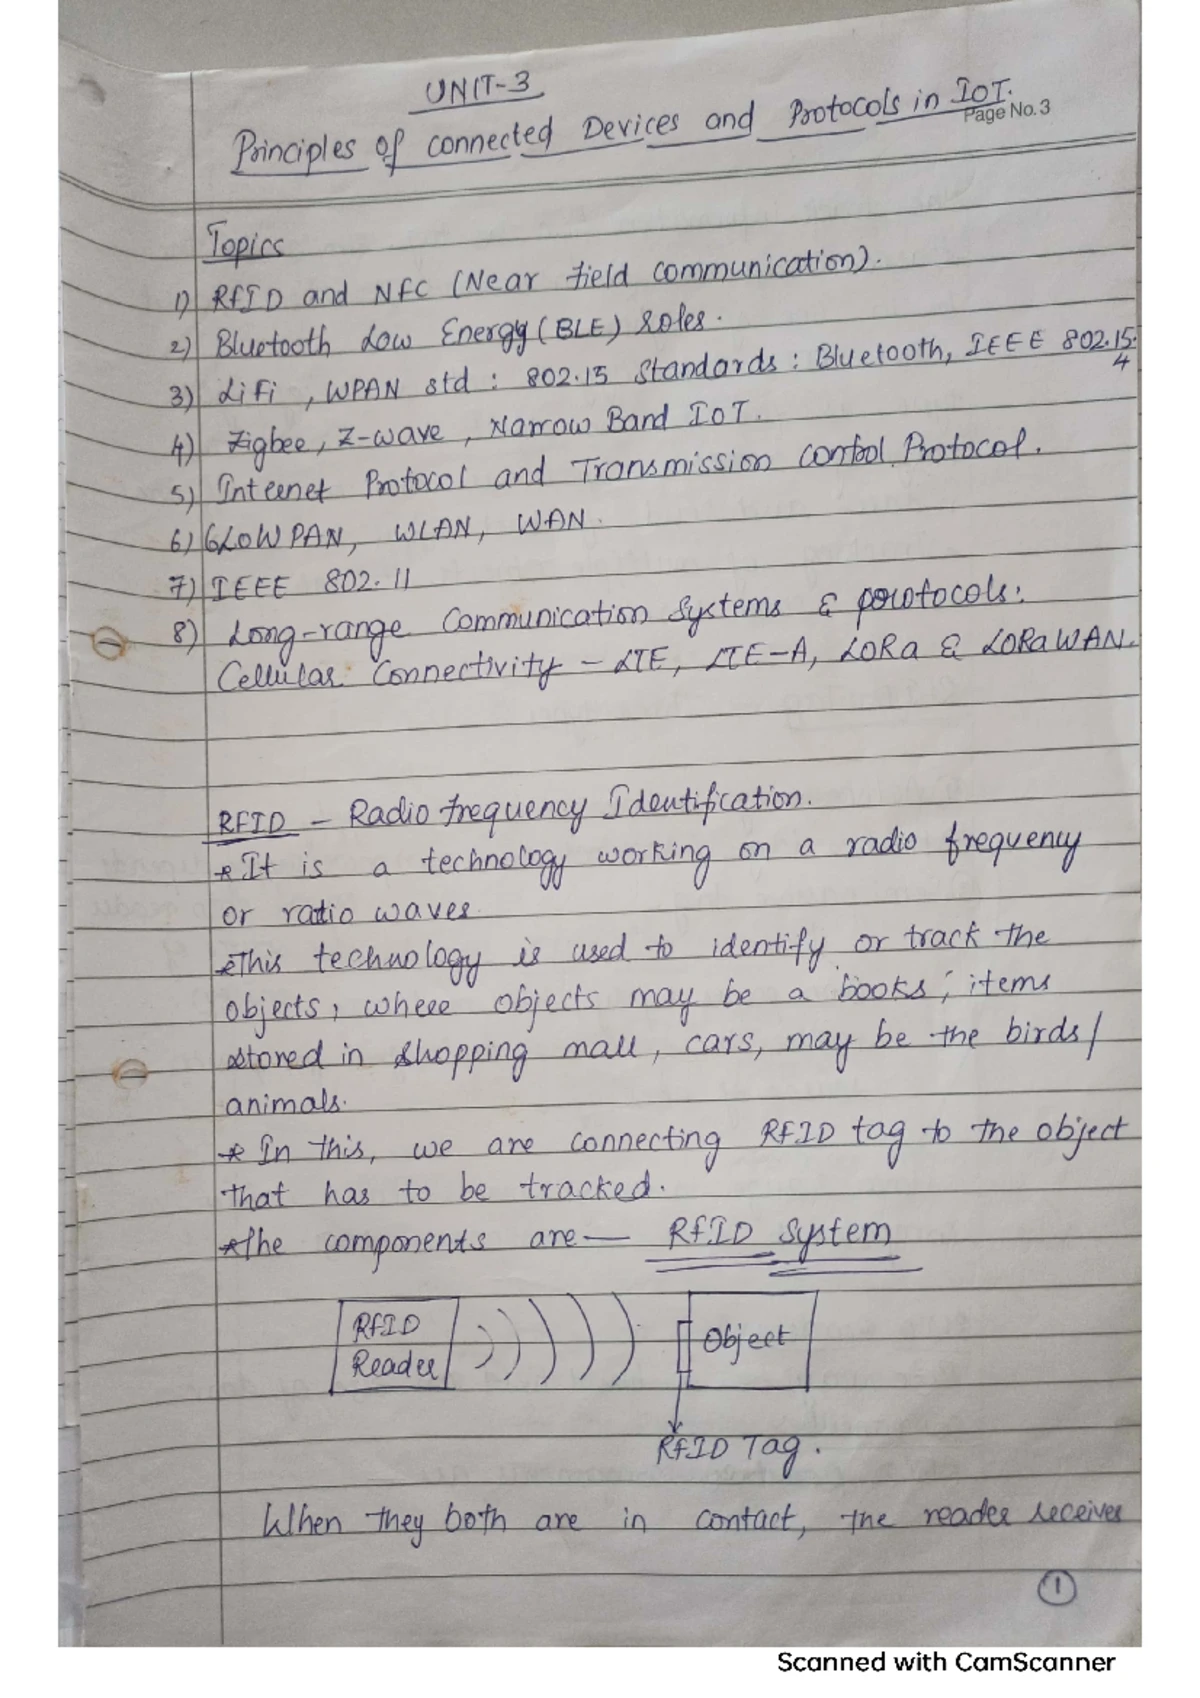 UNIT-3
Principles of connected Devices and Protocols in IOT.
Page No. 3
Topics
1) RFID and NFC (Near field communication).
2) Bluetooth Low Energy (BLE) roles.
3) LiFi, WPAN std : 802.15 Standards : Bluetooth, IEEE 802.15.
4
4) Zigbee, Z-wave, Narrow Band IoT.
5) Internet Protocol and Transmission control Protocol.
6) 6LOWPAN, WLAN, WAN.
7) IEEE 802.11
8) Long-range Communication Systems & protocols:
Cellular Connectivity - LTE, LTE-A, LORa & LORaWAN.
RFID - Radio frequency Identification.
* It is a technology working on a radio frequency
or ratio waves.
* This technology is used to identify or track the
objects, where objects may be a books, items
stored in shopping mall, cars, may be the birds/
animals.
* In this, we are connecting RFID tag to the object
that has to be tracked.
* The components are — RFID System
RFID
Reader
Object
RFID Tag.
When they both are in contact, the reader receives
1
Scanned with CamScanner